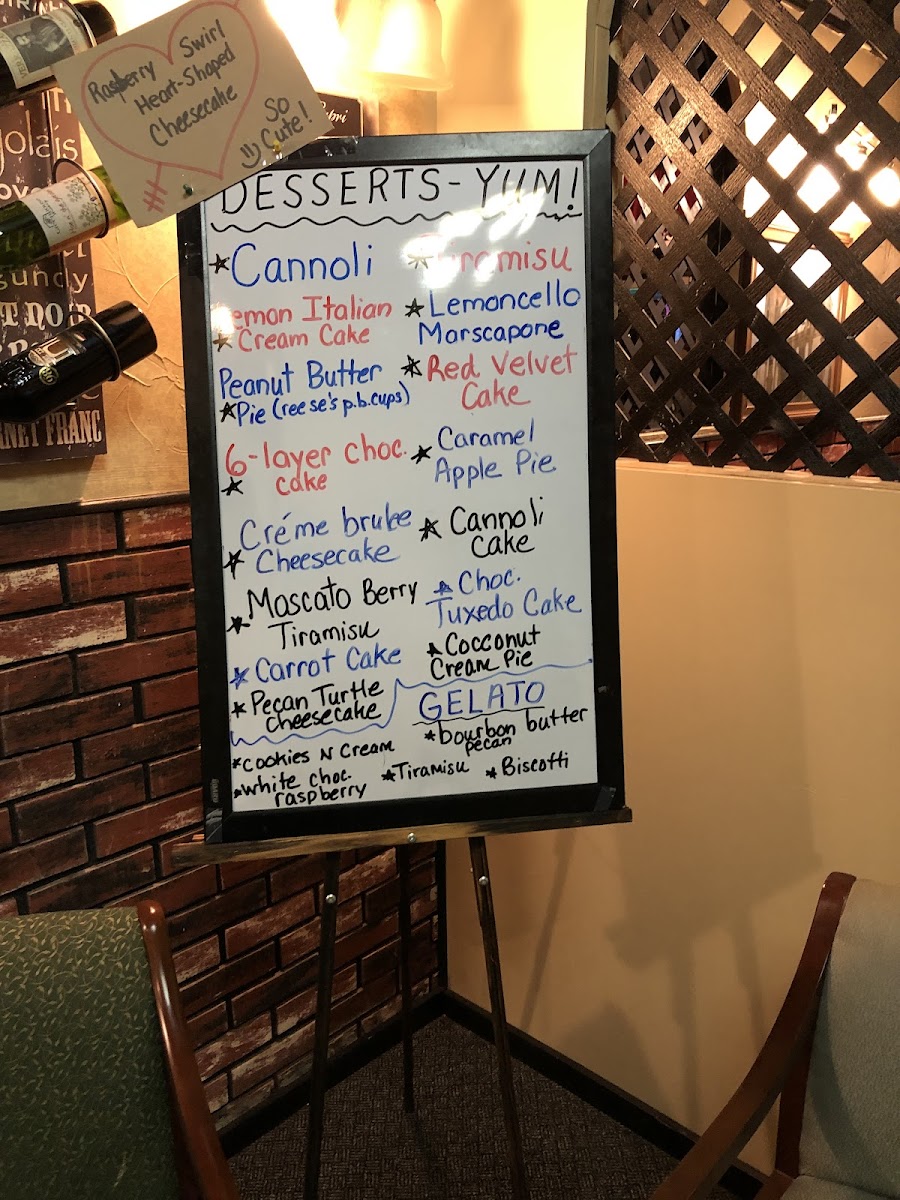 Raspberry Swirl
Heart-Shaped
Cheesecake
#
So
Cute!
DESSERTS - YUM!
Cannoli
Lemon Italian
Cream Cake
Peanut Butter
Pie (reese's p.b. cups)
6-layer choc.
cake
Créme brulee
Cheesecake
Moscato Berry
Tiramisu
Carrot Cake
Pecan Turtle
Cheesecake
Tiramisu
Lemoncello
Marscapone
Red Velvet
Cake
Caramel
Apple Pie
Cannoli
Cake
Choc.
Tuxedo Cake
Cocconut
Cream Pie
GELATO
bourbon butter
pecan
cookies N Cream
white choc.
raspberry
Tiramisu
Biscotti